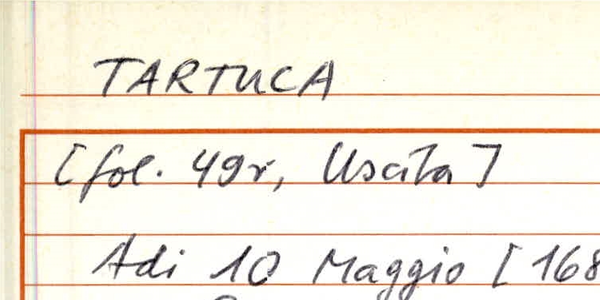 TARTUCA
[fol. 49r, Uscita]
Adi 10 Maggio [168